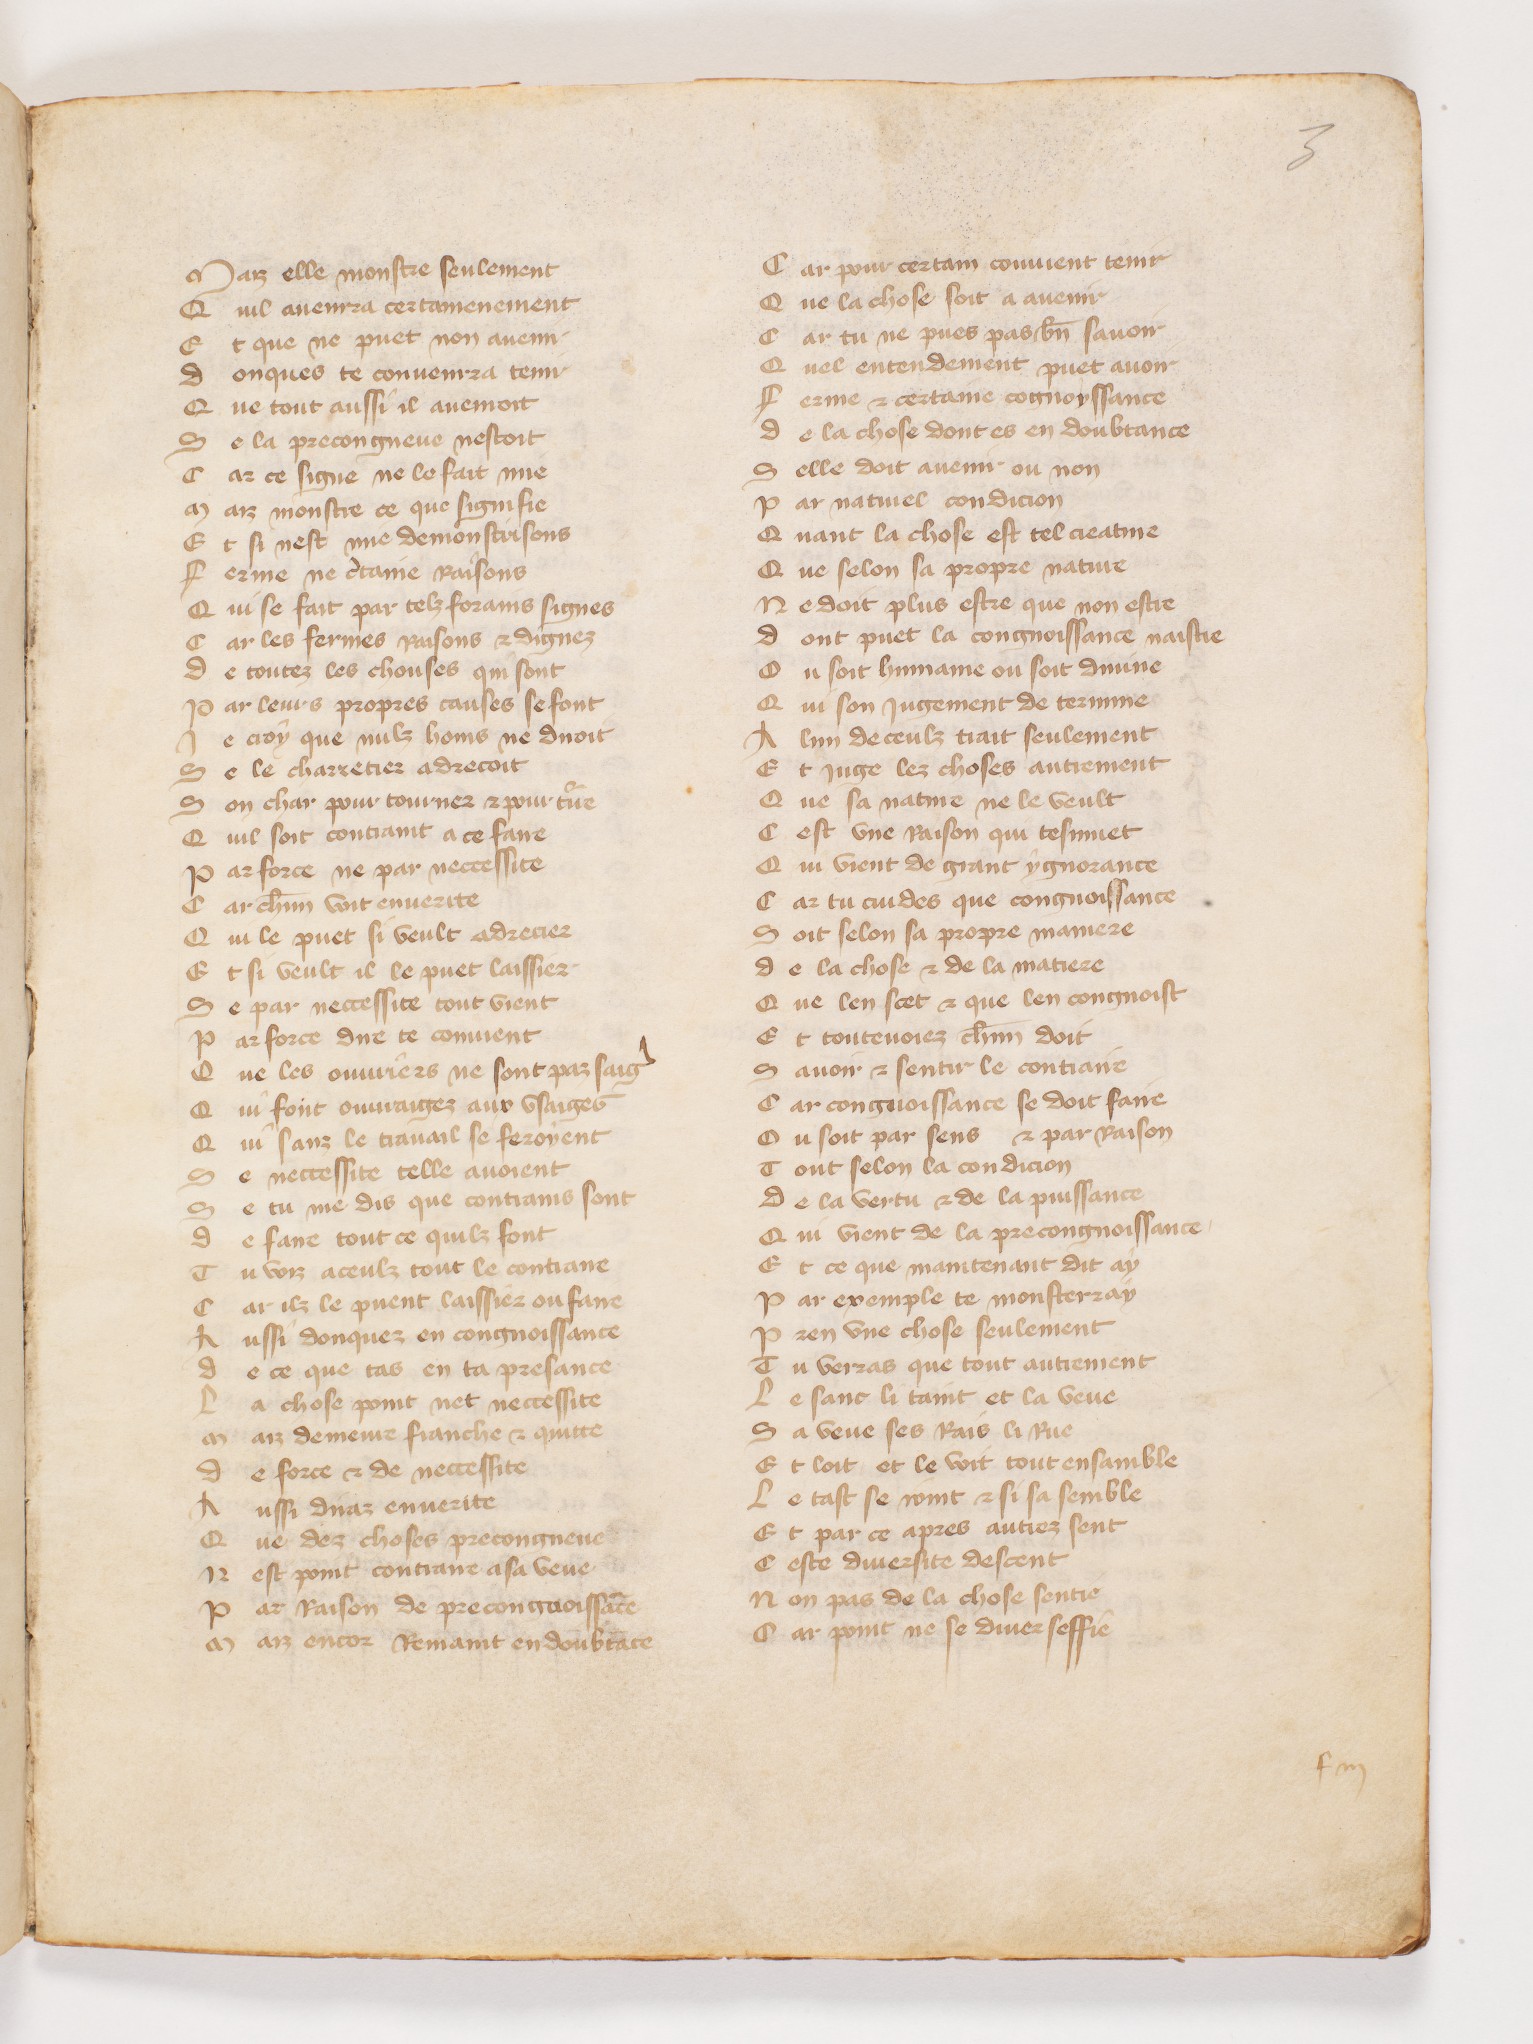 3
Maiz elle monstre seulement
Quil auenrra certamenement
Et que ne puet non auenir
donques te conuenrra tenir
Que tout aussi il auenroit
Se la precongneue nestoit
Car ce signe ne le fait mie
maiz monstre ce que signifie
Et si nest mie demonstrisons
Ferme ne certaine Raisons
Qui se fait par telz forains signes
Car les fermes Raisons & dignez
de toutez les chouses qui sont
Par leurs propres causes se font
Je croy que nulz homs ne diroit
Se le charretier adrecoit
Son char pour tourner & pour t
Quil soit contraint a ce faire
Par force ne par neccessite
Car chun voit enuerite
Qui le puet si veult adrecier
Et si veult il le puet laissier
Se par neccessite tout vient
Par force dire te conuient
Que les ouuriers ne sont paz saig
Qui font ouuraigez aux vsaiges
Qui sanz le trauail se feroyent
Se neccessite telle auoient
Se tu me dis que contrains sont
de faire tout ce quilz font
Tu voiz aceulz tout le contraire
Car ilz le puent laissier ou faire
Aussi donquez en congnoissance
de ce que tas en ta presance
La chose point net neccessite
maiz demeure franche & quitte
de force & de neccessite
Aussi diraz enuerite
Que dez choses precongneue
Nest point contraire asa veue
Par Raison de precongnoissāce
maiz encor Remaint en doubtāce
Car pour certain conuient tenir
Que la chose soit a auenir
Car tu ne pues pas bn̄ sauoir
Quel entendement puet auoir
Ferme & certaine cognoyssance
de la chose dont es en doubtance
Selle doit auenir ou non
Par naturel condicion
Quant la chose est tel creature
Que selon sa propre nature
Ne doit plus estre que non estre
dont puet la congnoissance naistre
Ou soit humaine ou soit diuine
Qui son Jugement de termine
A lun de ceulz trait seulement
Et Juge lez choses autrement
Que sa nature ne le veult
Cest vne Raison qui tesmuet
Qui vient de grant ygnorance
Car tu cuides que congnoissance
Soit selon sa propre maniere
de la chose & de la matiere
Que len scet & que len congnoist
Et toutevoiez chun doit
Sauoir & sentir le contraire
Car congnoissance se doit faire
Ou soit par sens & par Raison
Tout selon la condicion
De la vertu & de la puissance
Qui vient de la precongnoissance
Et ce que maintenant dit ay
Par exemple te monsterray
Pren vne chose seulement
Tu verras que tout autrement
Le sant li taint et la veue
Sa veue ses Rais li Rue
Et loit et le voit tout ensamble
Le tast se ioint & si sa semble
Et par ce apres autrez sent
Ceste diuersite descent
Non pas de la chose sentie
Car point ne se diuerseffie